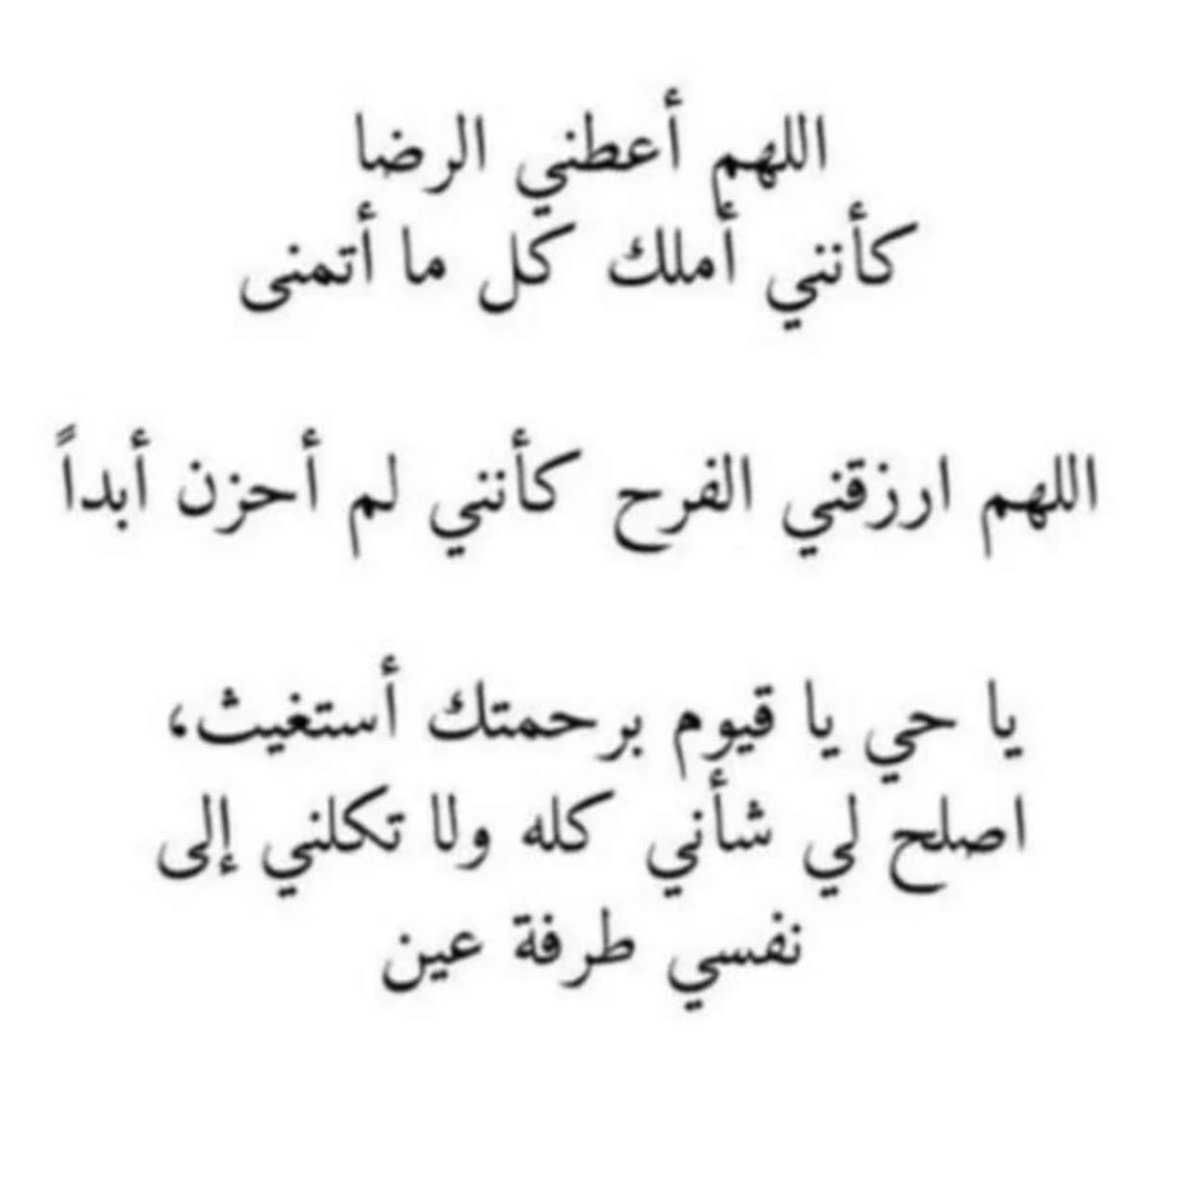 اللهم أعطني الرضا
كأنني أملك كل ما أتمنى
اللهم ارزقني الفرح كأنني لم أحزن أبداً
يا حي يا قيوم برحمتك أستغيث،
اصلح لي شأني كله ولا تكلني إلى
نفسي طرفة عين